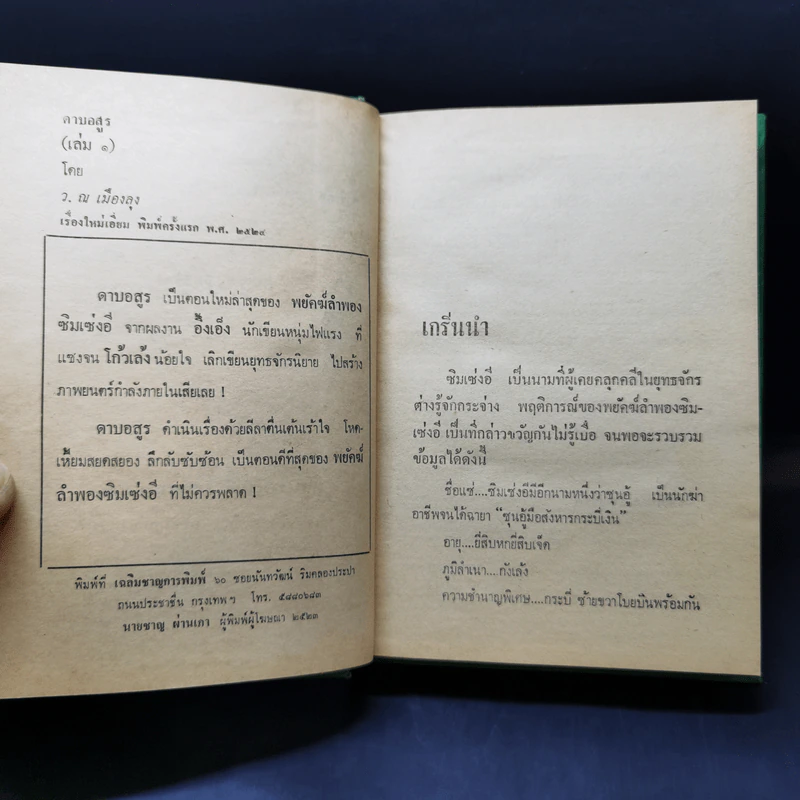 ดาบอสูร
(เล่ม ๑)
โดย
ว. ณ เมืองลุง
เรื่องใหม่เอี่ยม พิมพ์ครั้งแรก พ.ศ. ๒๕๒๔
ดาบอสูร เป็นตอนใหม่ล่าสุดของ พยัคฆ์ลำพอง
ซิมเซ่งอี่ จากผลงาน อึ้งเอ็ง นักเขียนหนุ่มไฟแรง ที่
แซงจน โก้วเล้ง น้อยใจ เลิกเขียนยุทธจักรนิยาย ไปสร้าง
ภาพยนตร์กำลังภายในเสียเลย !
ดาบอสูร ดำเนินเรื่องด้วยลีลาตื่นเต้นเร้าใจ โหด-
เหี้ยมสยดสยอง ลึกลับซับซ้อน เป็นตอนดีที่สุดของ พยัคฆ์
ลำพองซิมเซ่งอี่ ที่ไม่ควรพลาด !
พิมพ์ที่ เฉลิมชาญการพิมพ์ ๖๐ ซอยนันทวัฒน์ ริมคลองประปา
ถนนประชาชื่น กรุงเทพฯ โทร. ๕๘๘๐๖๘๓
นายชาญ ผ่านเภา ผู้พิมพ์ผู้โฆษณา ๒๕๒๓
เกริ่นนำ
ซิมเซ่งอี่ เป็นนามที่ผู้เคยคลุกคลีในยุทธจักร
ต่างรู้จักกระจ่าง พฤติการณ์ของพยัคฆ์ลำพองซิม-
เซ่งอี่ เป็นที่กล่าวขวัญกันไม่รู้เบื่อ จนพอจะรวบรวม
ข้อมูลได้ดังนี้
ชื่อแซ่....ซิมเซ่งอี่มีอีกนามหนึ่งว่าชุนอู้ เป็นนักฆ่า
อาชีพจนได้ฉายา “ชุนอู้มือสังหารกระบี่เงิน”
อายุ....ยี่สิบหกยี่สิบเจ็ด
ภูมิลำเนา....กังเล้ง
ความชำนาญพิเศษ....กระบี่ ซ้ายขวาโบยบินพร้อมกัน